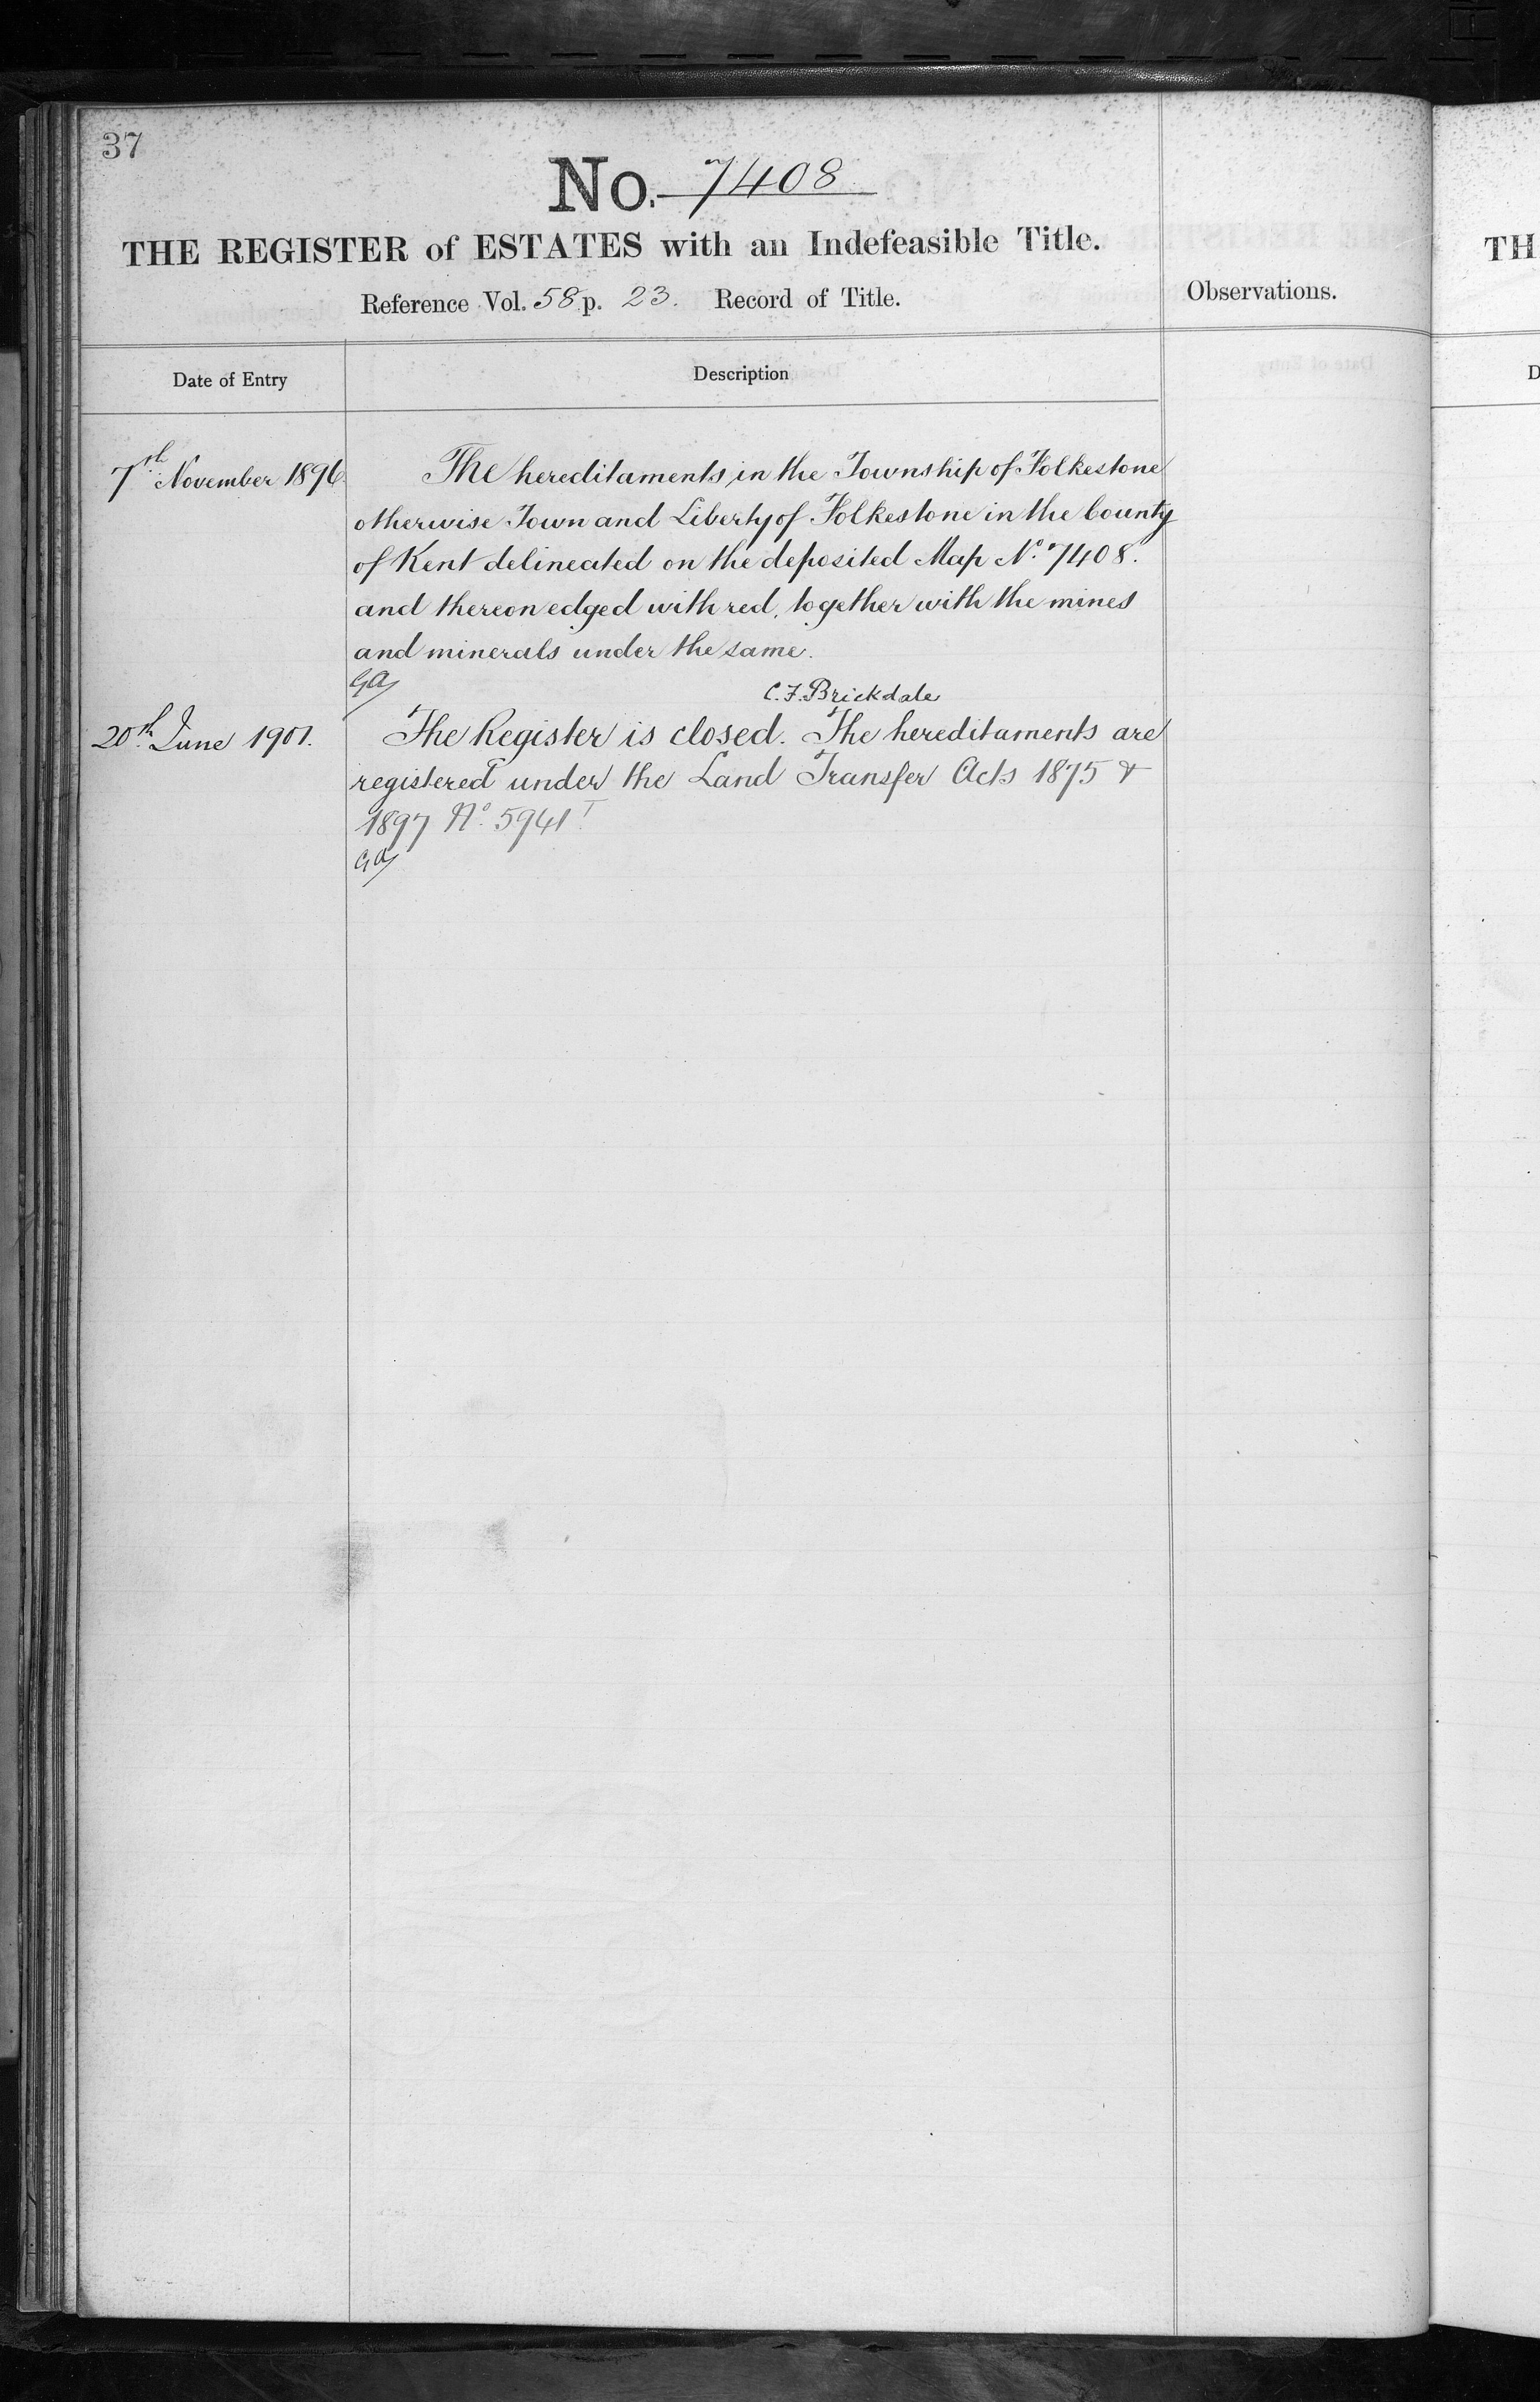 37
No. 7408
THE REGISTER of ESTATES with an Indefeasible Title.
Reference Vol. 58 p. 23. Record of Title.
Observations.
Date of Entry
Description
7th November 1896.
The hereditaments in the Township of Folkestone
otherwise Town and Liberty of Folkestone in the County
of Kent delineated on the deposited Map No. 7408.
and thereon edged with red, together with the mines
and minerals under the same.
C. F. Brickdale
20th June 1901.
The Register is closed. The hereditaments are
registered under the Land Transfer Acts 1875 &
1897 No. 5941
TH
D